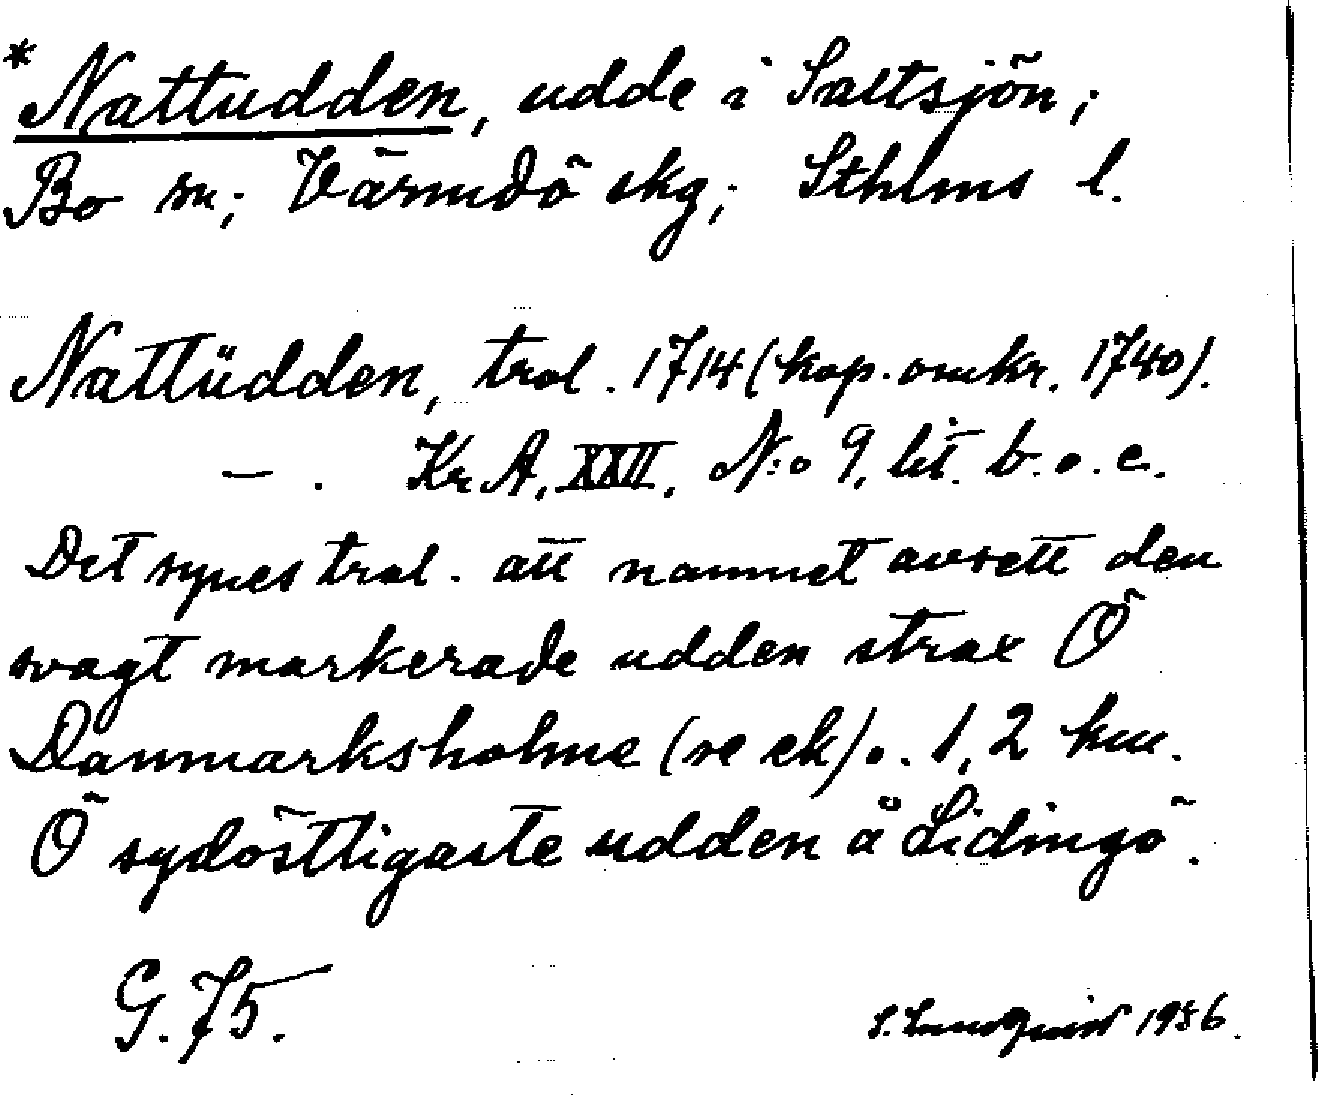 *Nattudden, udde i Saltsjön;
Bo sn; Värmdö skg; Sthlms l.
Nattüdden, trol. 1714 (kop. omkr. 1740).
— . Kr A, XXII, N:o 9, lit. b. o. c.
Det synes trol. att namnet avsett den
svagt markerade udden strax Ö
Danmarksholme (se ek) o. 1,2 km.
Ö sydöstligaste udden å Lidingö.
G. 75.
S. Lundquist 1936.